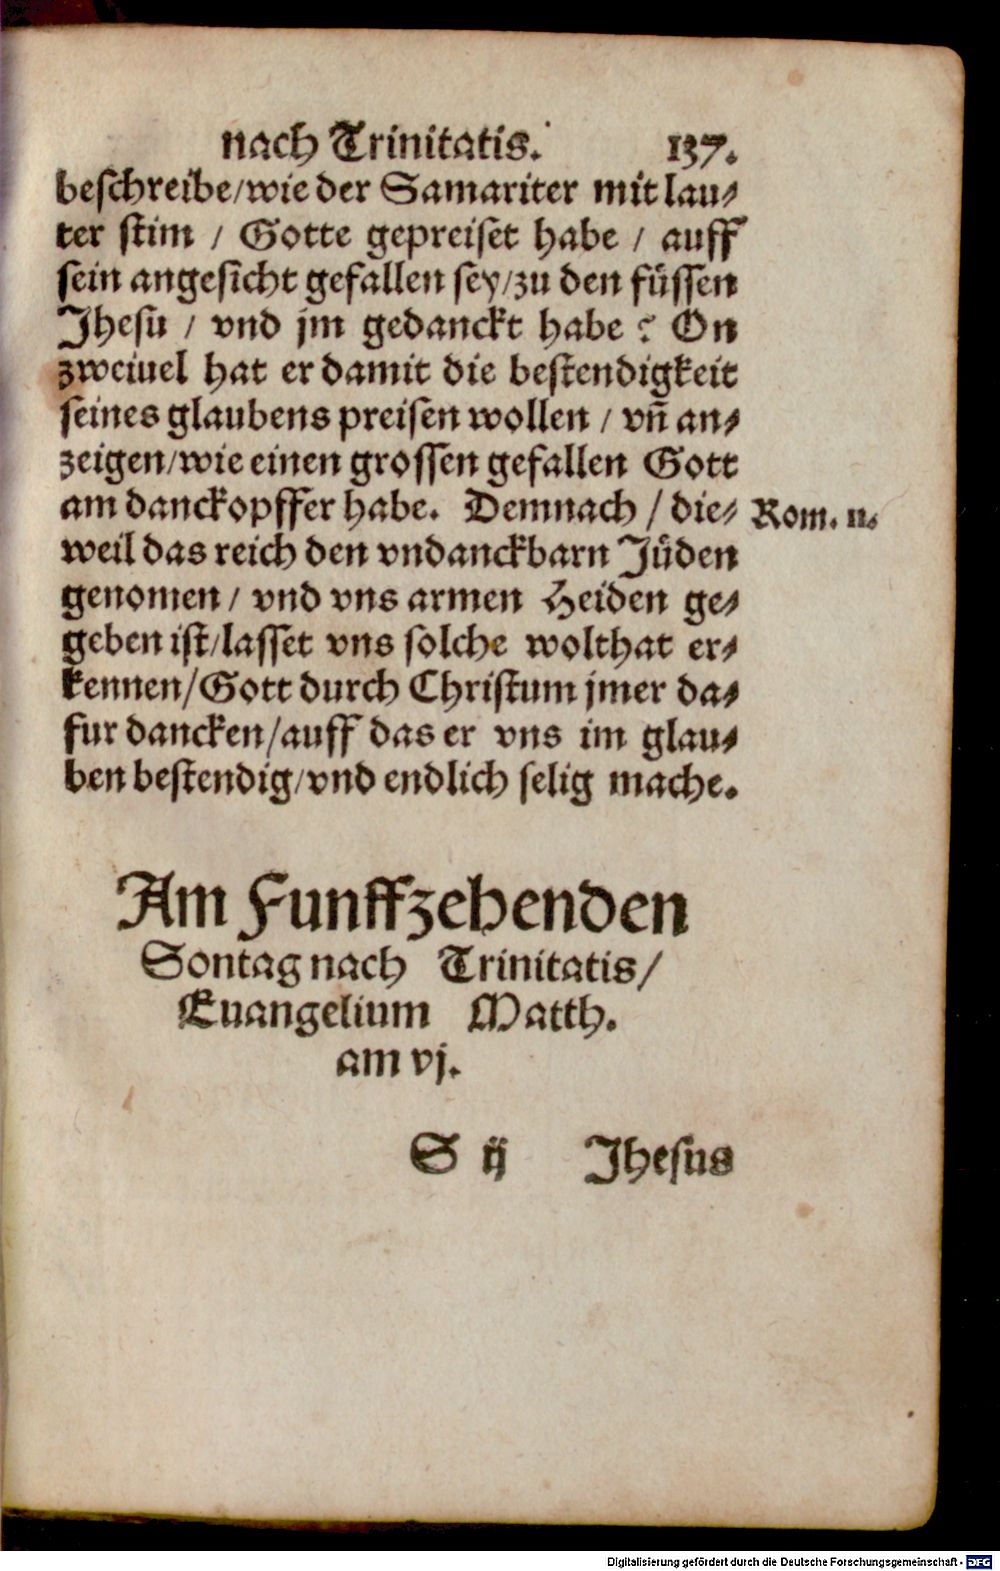 nach Trinitatis. 137.
beschreibe/wie der Samariter mit lau⸗
ter stim / Gotte gepreiset habe / auff
sein angesicht gefallen sey/zu den füssen
Jhesu / vnd jm gedanckt habe ? On
zweiuel hat er damit die bestendigkeit
seines glaubens preisen wollen / vñ an⸗
zeigen/wie einen grossen gefallen Gott
am danckopffer habe. Demnach / die⸗ Rom. 11.
weil das reich den vndanckbarn Jüden
genomen/ vnd vns armen Heiden ge⸗
geben ist/lasset vns solche wolthat er⸗
kennen/Gott durch Christum jmer da⸗
fur dancken/auff das er vns im glau⸗
ben bestendig/vnd endlich selig mache.
Am Funffzehenden
Sontag nach Trinitatis/
Euangelium Matth.
am vj.
S ij Jhesus
Digitalisierung gefördert durch die Deutsche Forschungsgemeinschaft - DFG